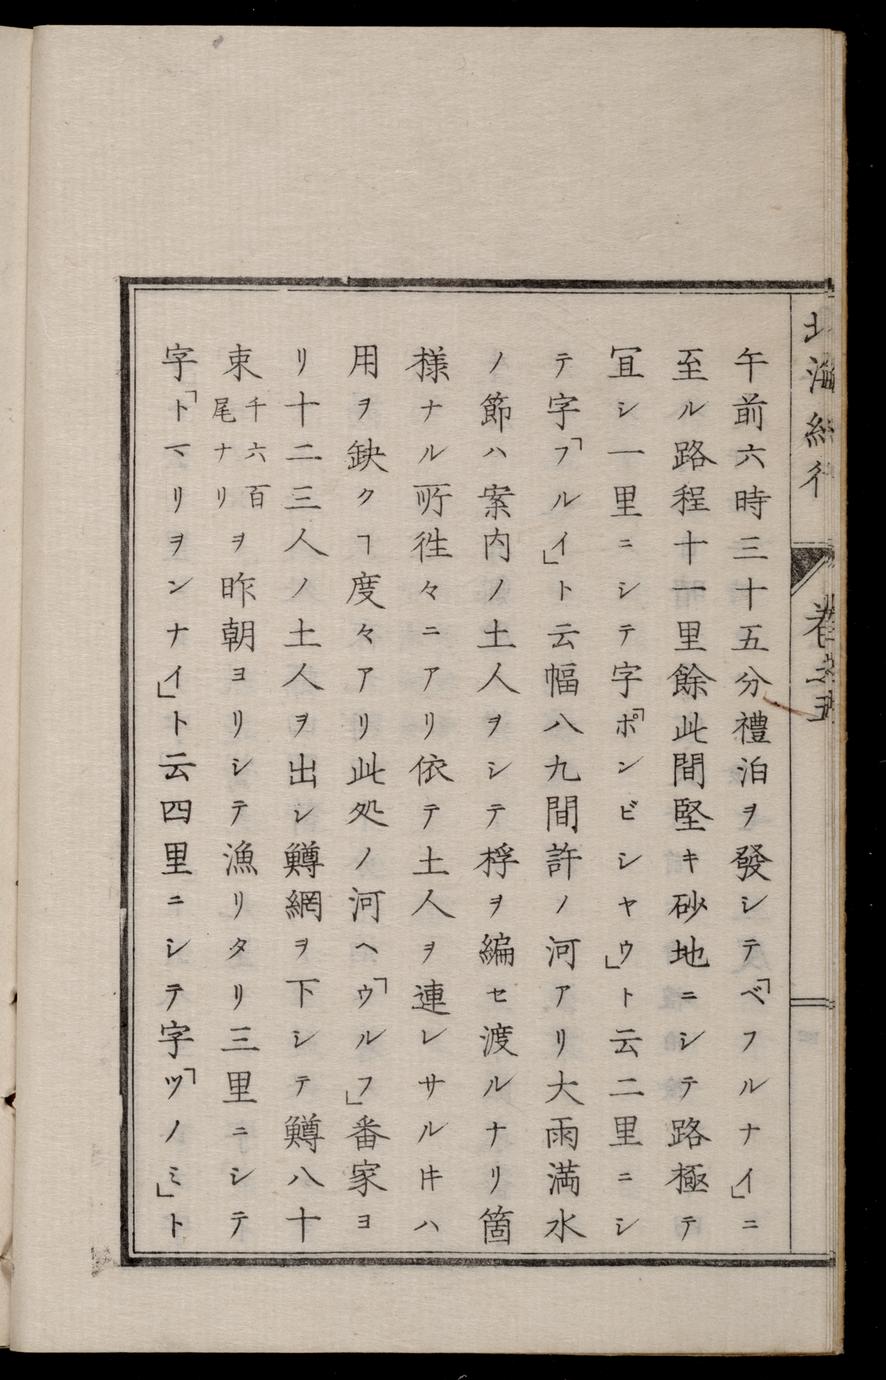 北海紀行
卷之五
午前六時三十五分禮泊ヲ發シテ「ベフルナイ」ニ
至ル路程十一里餘此間堅キ砂地ニシテ路極テ
冝シ一里ニシテ字「ポンビシヤウ」ト云二里ニシ
テ字「フルイ」ト云幅八九間許ノ河アリ大雨満水
ノ節ハ案内ノ土人ヲシテ桴ヲ編セ渡ルナリ箇
様ナル所徃々ニアリ依テ土人ヲ連レサル𪜈ハ
用ヲ缺クヿ度々アリ此処ノ河ヘ「ウルフ」番家ヨ
リ十二三人ノ土人ヲ出シ鱒網ヲ下シテ鱒八十
束千六百尾ナリヲ昨朝ヨリシテ漁リタリ三里ニシテ
字「トマリヲンナイ」ト云四里ニシテ字「ツノミ」ト